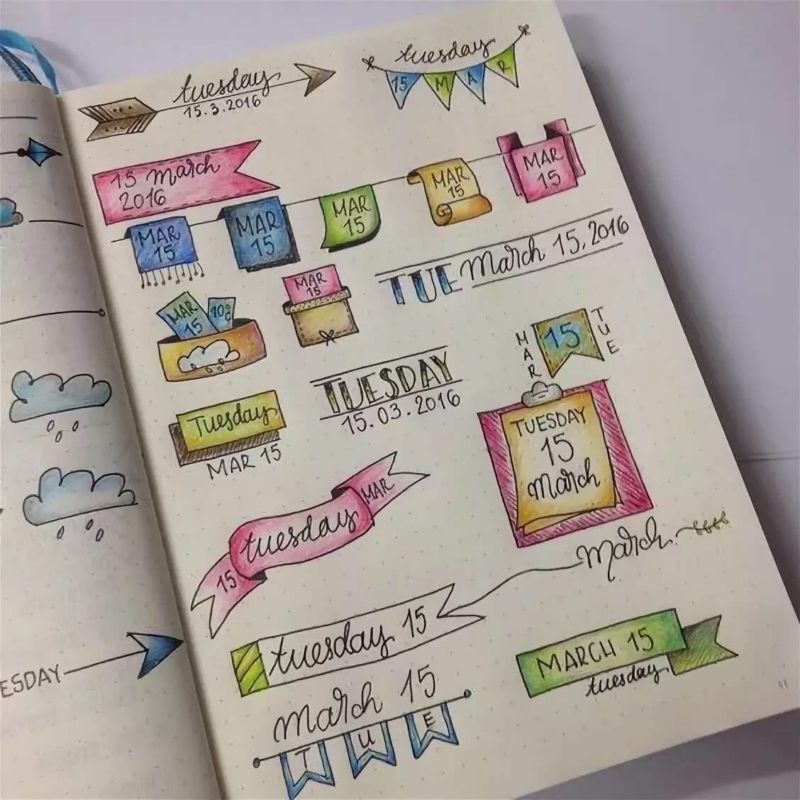 tuesday
15.3.2016
tuesday
15 MAR
15 March
2016
MAR
15
MAR
15
MAR
15
MAR
15
MAR
15
TUE March 15, 2016
MAR
15
MAR
15
MAR
15
TUE
TUESDAY
15.03.2016
Tuesday
MAR 15
TUESDAY
15
March
15 tuesday MAR
March
tuesday 15
MARCH 15
tuesday
ESDAY
March 15
TUE